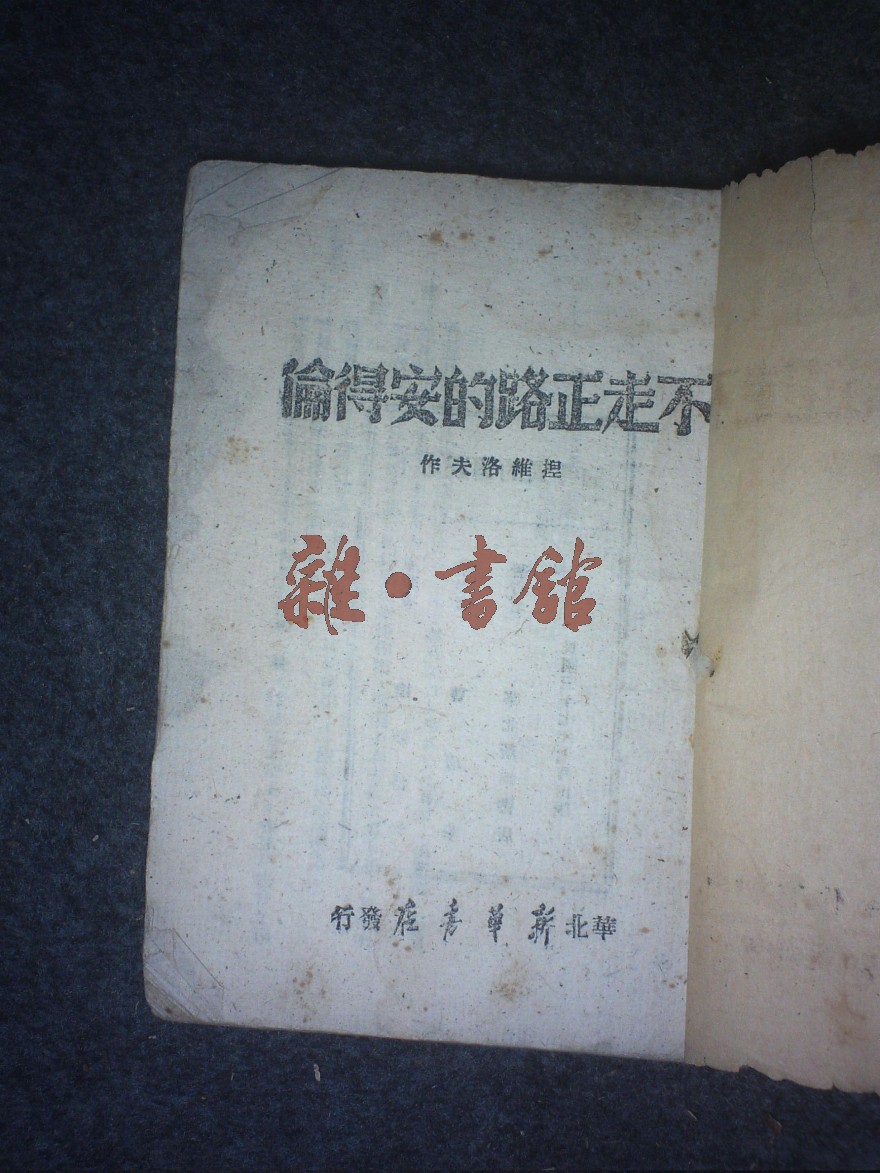 不走正路的安得倫
揑維洛夫作
雜·書舘
華北新華書店發行